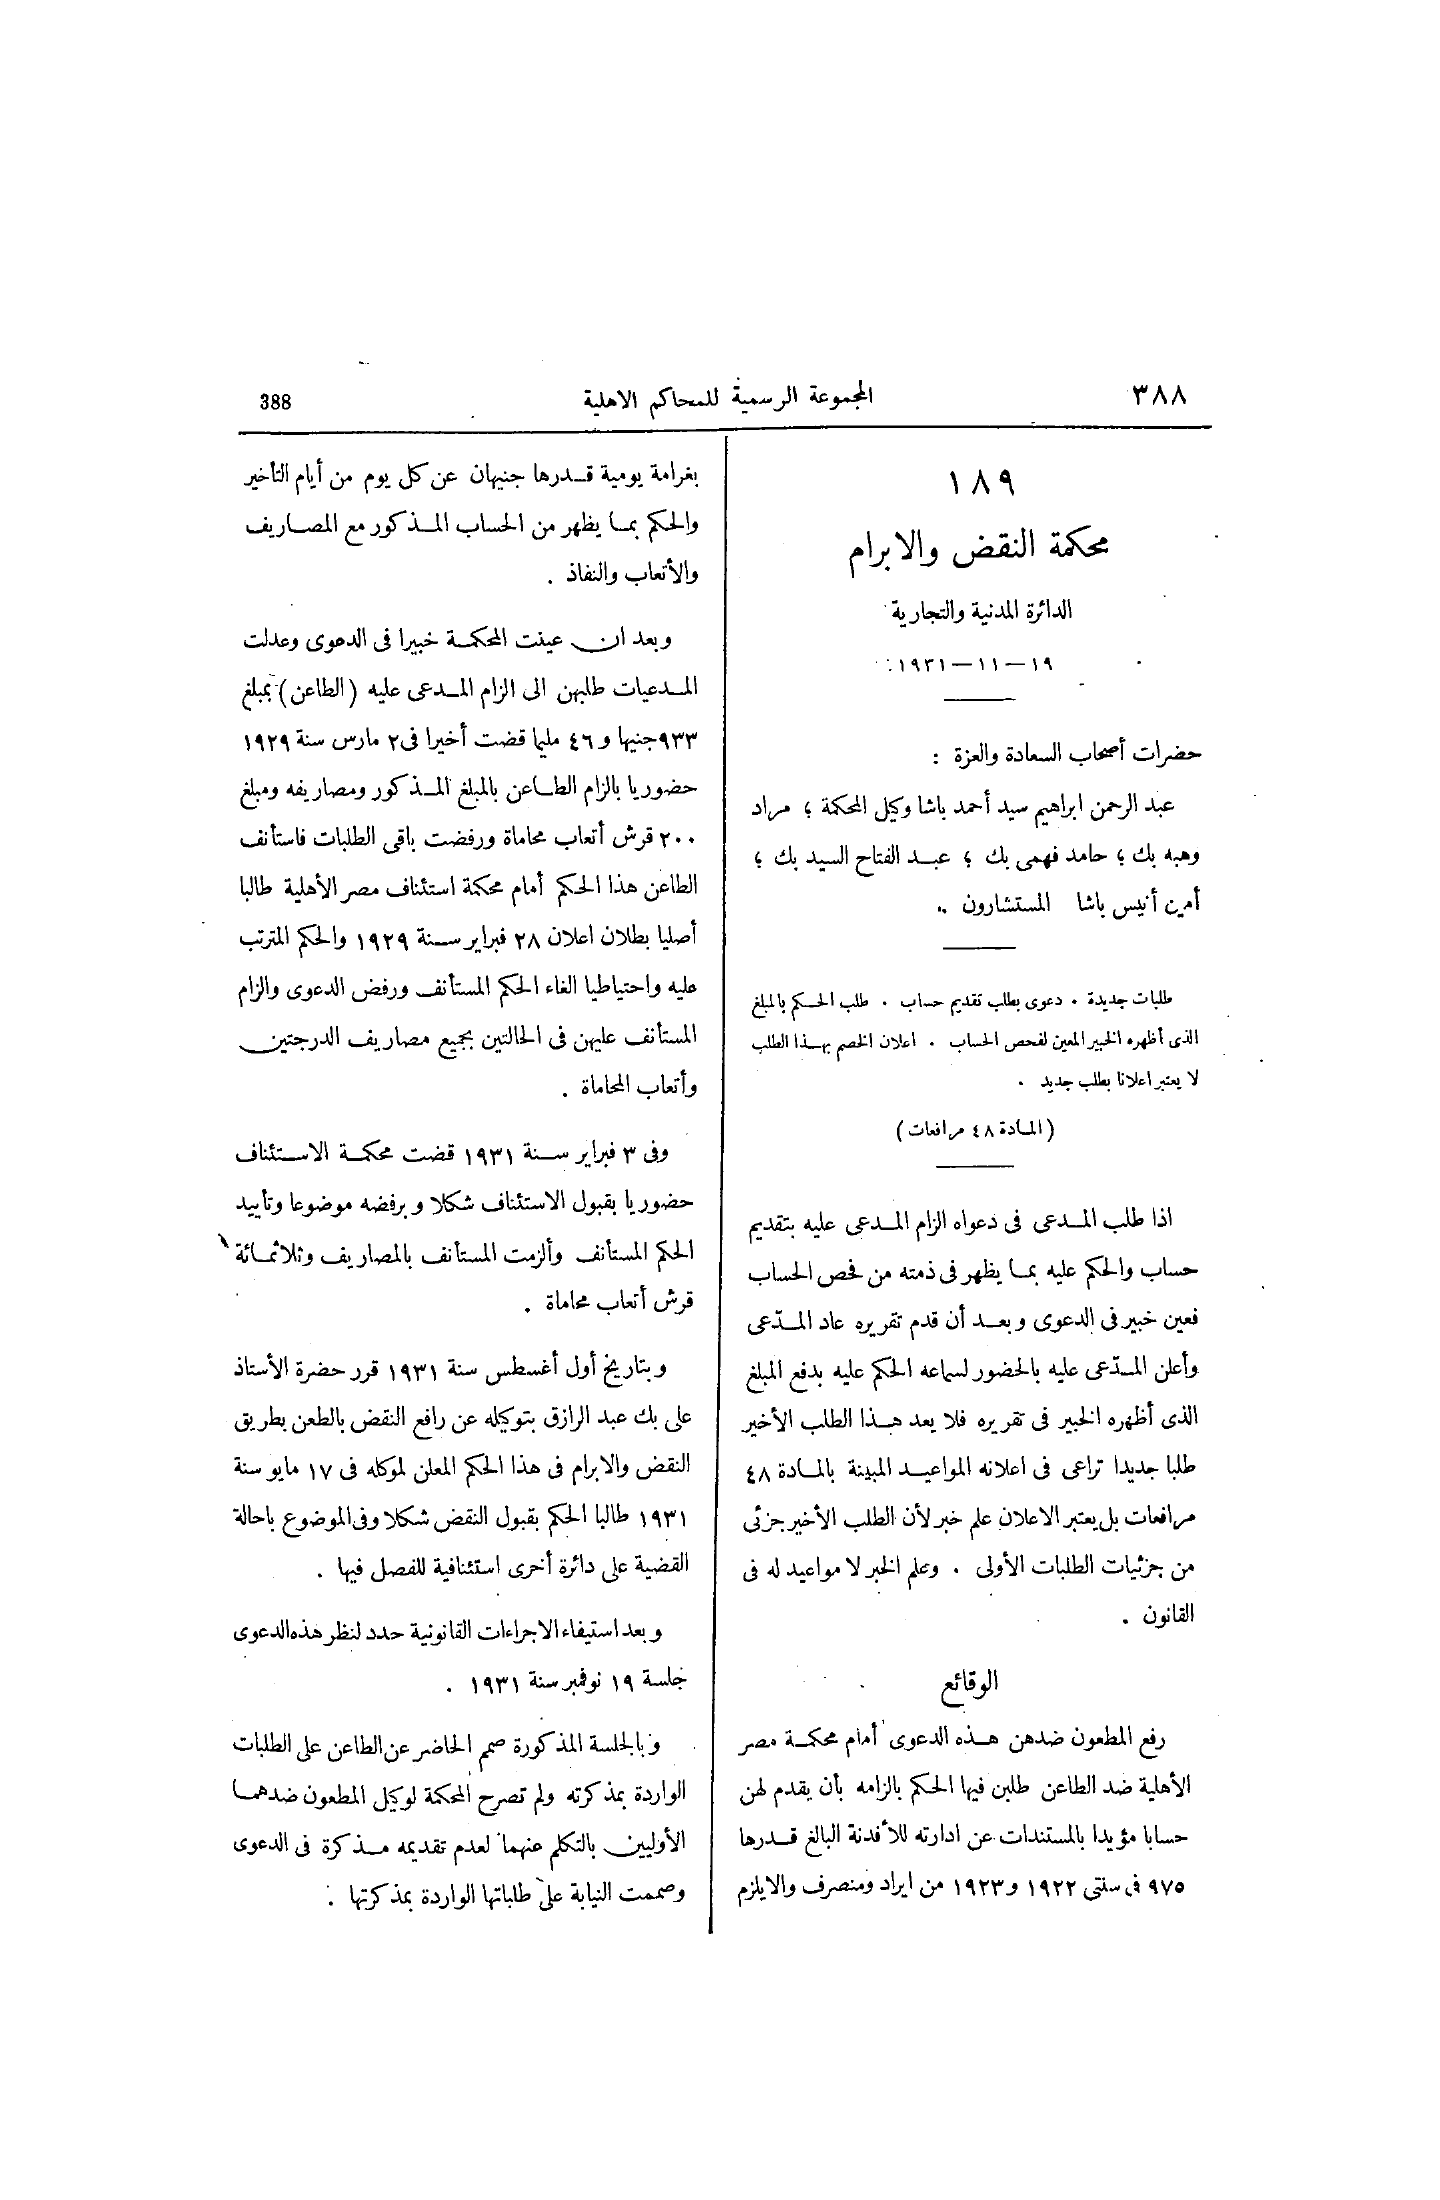 ٣٨٨
المجموعة الرسمية للمحاكم الاهلية
388
١٨٩
محكمة النقض والابرام
الدائرة المدنية والتجارية
١٩ — ١١ — ١٩٣١
حضرات أصحاب السعادة والعزة :
عبد الرحمن ابراهيم سيد أحمد باشا وكيل المحكمة ؛ مراد
وهبه بك ؛ حامد فهمى بك ؛ عبد الفتاح السيد بك ؛
أمين أنيس باشا المستشارون .
طلبات جديدة . دعوى بطلب تقديم حساب . طلب الحكم بالمبلغ
الذى أظهره الخبير المعين لفحص الحساب . اعلان الخصم بهذا الطلب
لا يعتبر اعلانا بطلب جديد .
(المادة ٤٨ مرافعات)
اذا طلب المدعى فى دعواه الزام المدعى عليه بتقديم
حساب والحكم عليه بما يظهر فى ذمته من فحص الحساب
فعين خبير فى الدعوى وبعد أن قدم تقريره عاد المدّعى
وأعلن المدّعى عليه بالحضور لسماعه الحكم عليه بدفع المبلغ
الذى أظهره الخبير فى تقريره فلا يعد هذا الطلب الأخير
طلبا جديدا تراعى فى اعلانه المواعيد المبينة بالمادة ٤٨
مرافعات بل يعتبر الاعلان علم خبر لأن الطلب الأخير جزئى
من جزئيات الطلبات الأولى . وعلم الخبر لا مواعيد له فى
القانون .
الوقائع
رفع المطعون ضدهن هذه الدعوى أمام محكمة مصر
الأهلية ضد الطاعن طلبن فيها الحكم بالزامه بأن يقدم لهن
حسابا مؤيدا بالمستندات عن ادارته للأفدنة البالغ قدرها
٩٧٥ فى سنتى ١٩٢٢ و ١٩٢٣ من ايراد ومنصرف والا يلزم
بغرامة يومية قدرها جنيهان عن كل يوم من أيام التأخير
والحكم بما يظهر من الحساب المذكور مع المصاريف
والأتعاب والنفاذ .
وبعد ان عينت المحكمة خبيرا فى الدعوى وعدلت
المدعيات طلبهن الى الزام المدعى عليه (الطاعن) بمبلغ
٩٣٣ جنيها و ٤٦ مليما قضت أخيرا فى ٢ مارس سنة ١٩٢٩
حضوريا بالزام الطاعن بالمبلغ المذكور ومصاريفه ومبلغ
٢٠٠ قرش أتعاب محاماة ورفضت باقى الطلبات فاستأنف
الطاعن هذا الحكم أمام محكمة استئناف مصر الأهلية طالبا
أصليا بطلان اعلان ٢٨ فبراير سنة ١٩٢٩ والحكم المترتب
عليه واحتياطيا الغاء الحكم المستأنف ورفض الدعوى والزام
المستأنف عليهن فى الحالتين بجميع مصاريف الدرجتين
وأتعاب المحاماة .
وفى ٣ فبراير سنة ١٩٣١ قضت محكمة الاستئناف
حضوريا بقبول الاستئناف شكلا وبرفضه موضوعا وتأييد
الحكم المستأنف وألزمت المستأنف بالمصاريف وثلاثمائة
قرش أتعاب محاماة .
وبتاريخ أول أغسطس سنة ١٩٣١ قرر حضرة الأستاذ
على بك عبد الرازق بتوكيله عن رافع النقض بالطعن بطريق
النقض والابرام فى هذا الحكم المعلن لموكله فى ١٧ مايو سنة
١٩٣١ طالبا الحكم بقبول النقض شكلا وفى الموضوع باحالة
القضية على دائرة أخرى استئنافية للفصل فيها .
وبعد استيفاء الاجراءات القانونية حدد لنظر هذه الدعوى
جلسة ١٩ نوفمبر سنة ١٩٣١ .
وبالجلسة المذكورة صمم الحاضر عن الطاعن على الطلبات
الواردة بمذكرته ولم تصرح المحكمة لوكيل المطعون ضدهما
الأوليين بالتكلم عنهما لعدم تقديمه مذكرة فى الدعوى
وصممت النيابة على طلباتها الواردة بمذكرتها .